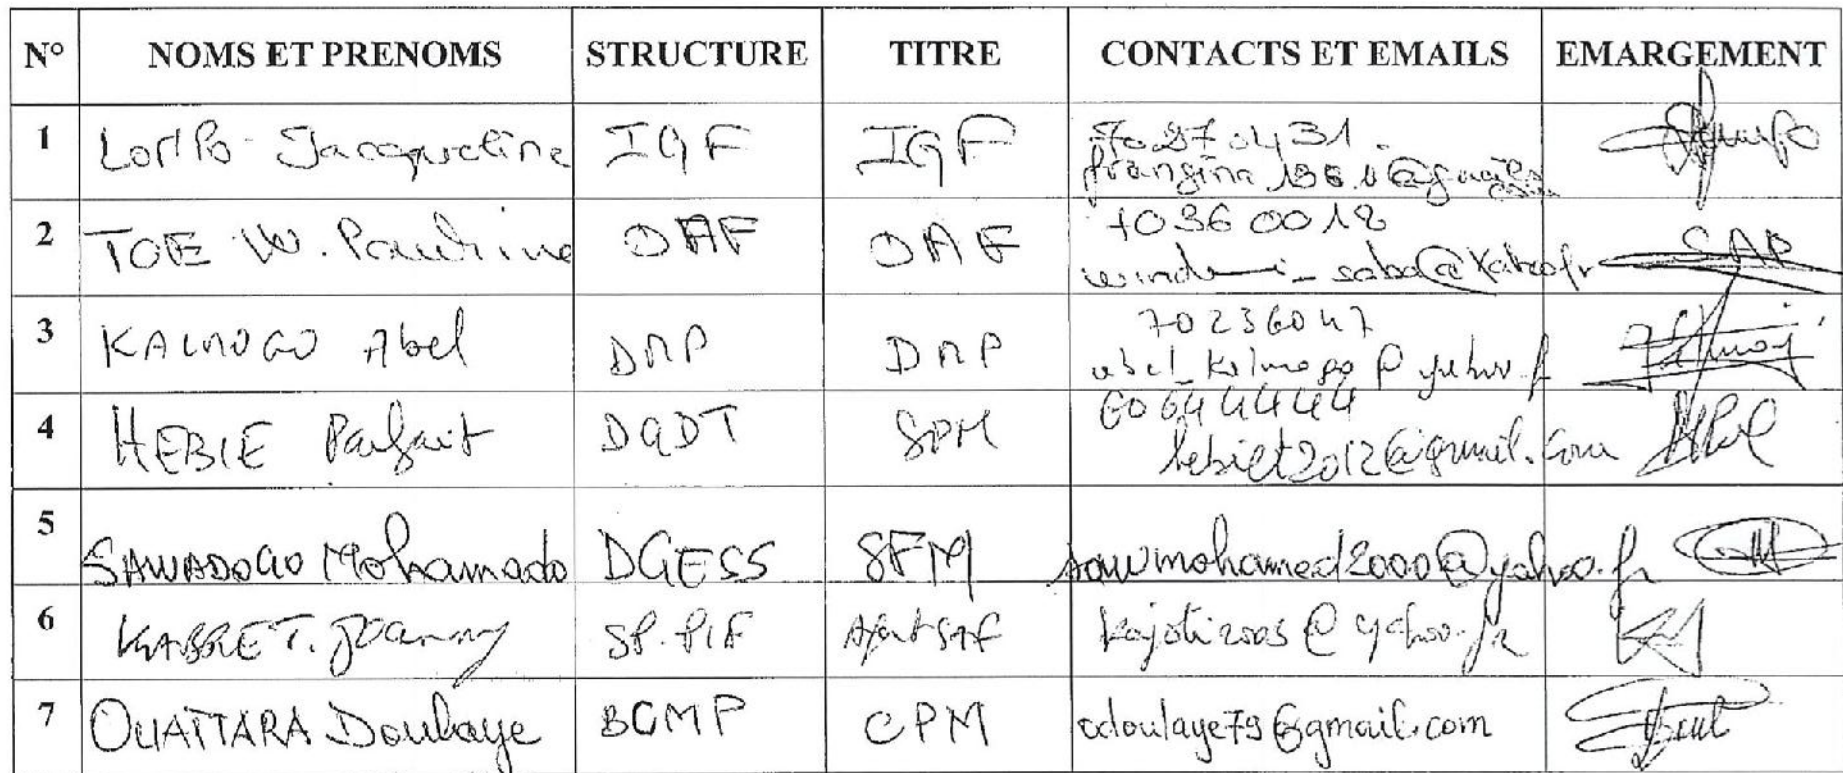 N° NOMS ET PRENOMS STRUCTURE TITRE CONTACTS ET EMAILS EMARGEMENT
1 Jacqueline IGF IGF 70270431
2 TOE W. Pauline DAF DAF 70360018
3 KALMOGO Abel DMP DMP 70236047
abel_kalmogo@yahoo.f
4 HEBIE Parfait DGDT SPM 60644444
hebiet2012@gmail.com
5 SAWADOGO Mohamado DGESS SFM sawmohamed2000@yahoo.fr
6 KABRE T. Joanny SP.PIF Agent SAF kajoti2005@yahoo.fr
7 OUATTARA Doulaye BCMP CPM odoulaye79@gmail.com